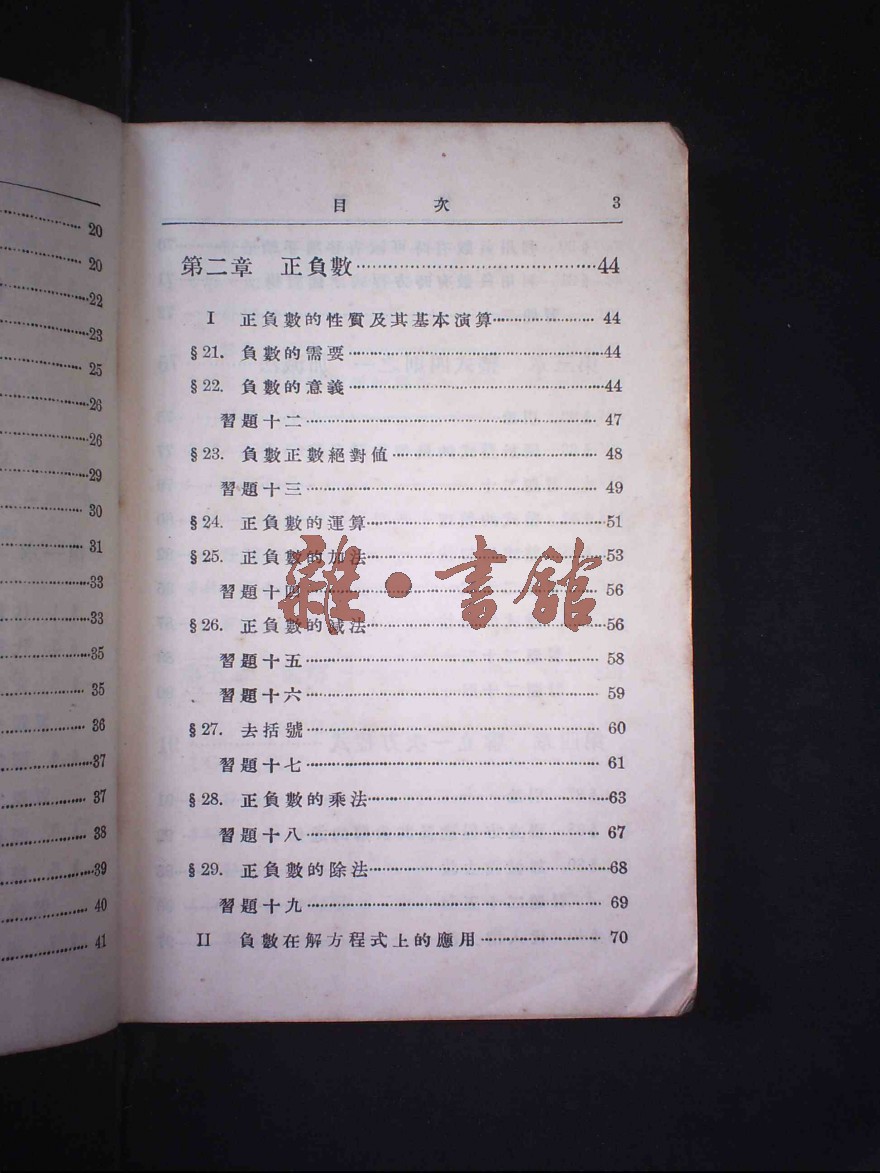 20
20
22
23
25
26
26
29
30
31
33
33
35
35
36
37
37
38
39
40
41
目 次 3
第二章 正負數……44
I 正負數的性質及其基本演算……44
§21. 負數的需要……44
§22. 負數的意義……44
習題十二……47
§23. 負數正數絕對值……48
習題十三……49
§24. 正負數的運算……51
§25. 正負數的加法……53
習題十四……56
§26. 正負數的減法……56
習題十五……58
習題十六……59
§27. 去括號……60
習題十七……61
§28. 正負數的乘法……63
習題十八……67
§29. 正負數的除法……68
習題十九……69
II 負數在解方程式上的應用……70
雜·書館